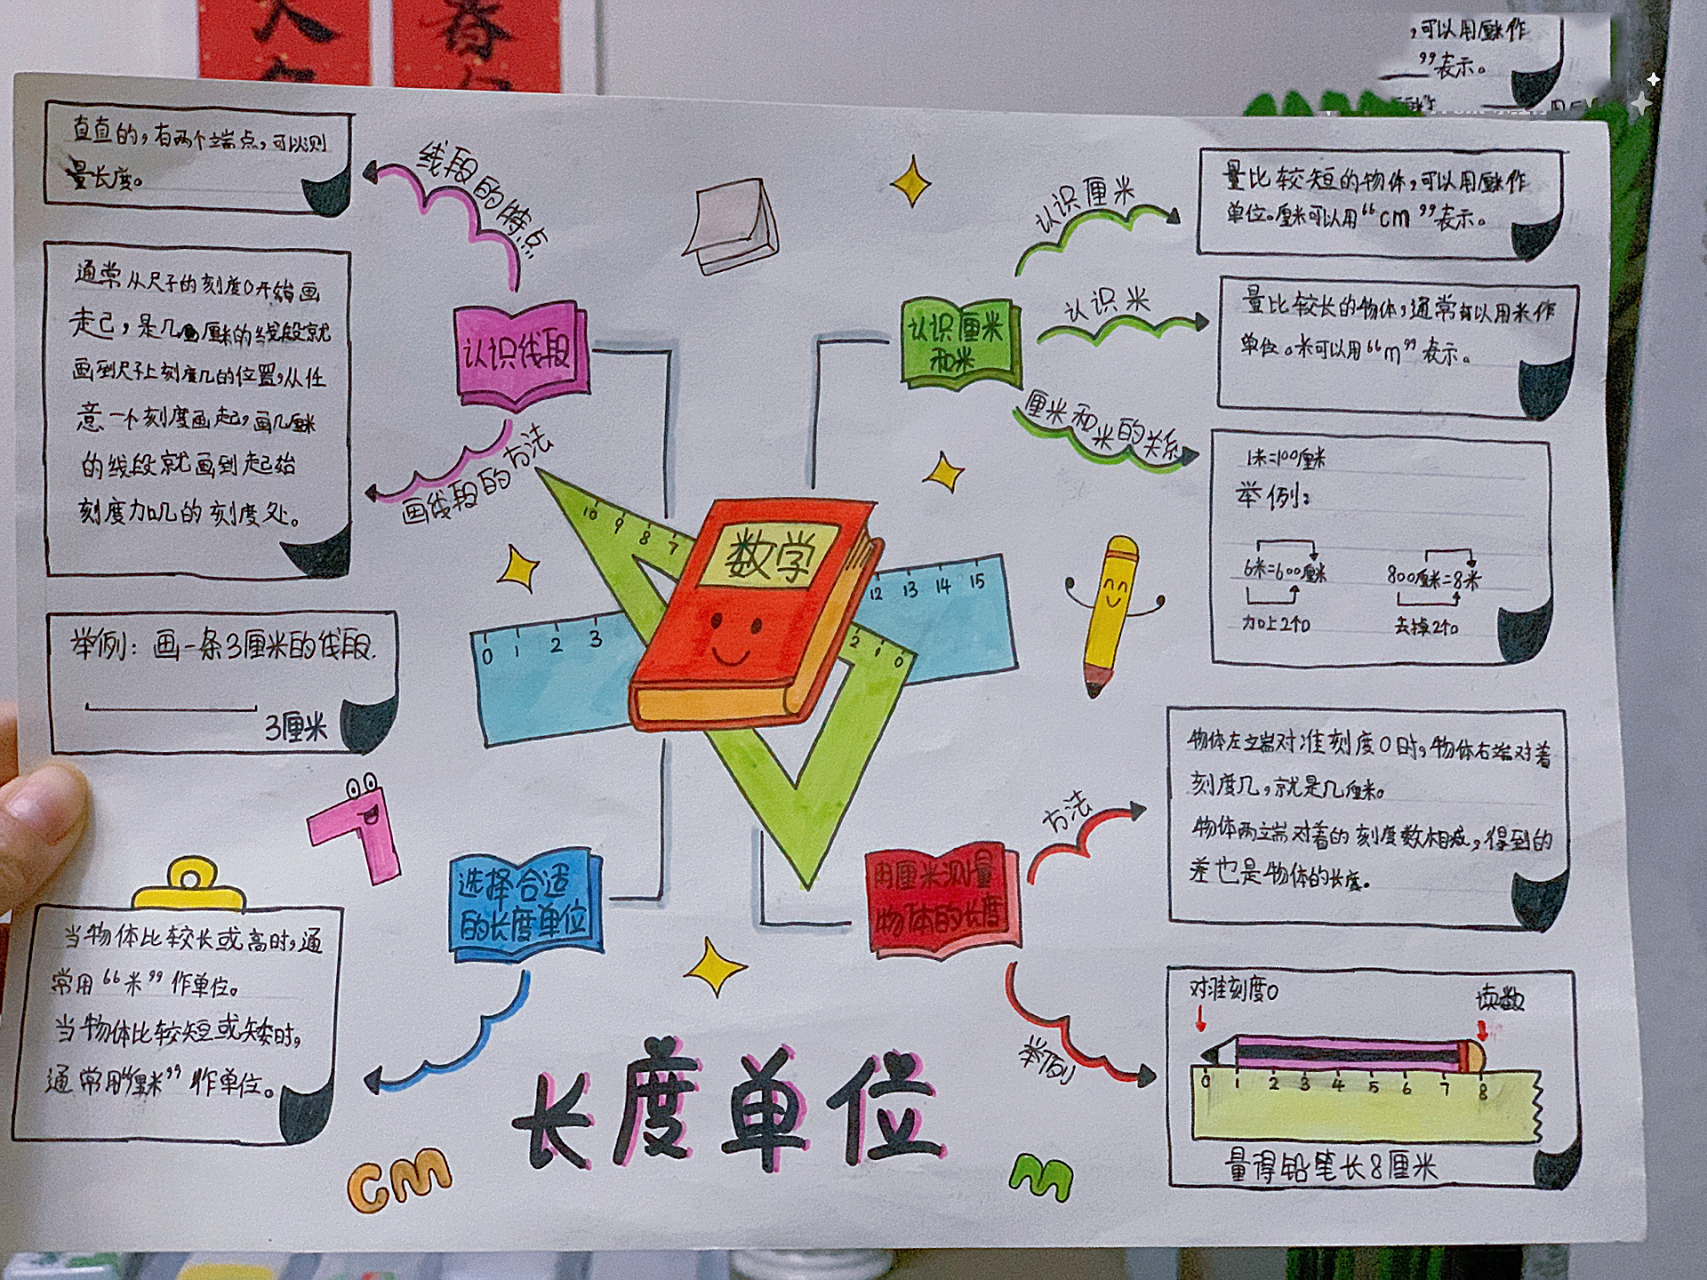 春
，可以用厘米作
”表示。
直直的，有两个端点，可以测
量长度。
线段的特点
通常从尺子的刻度0开始画
走已，是几厘米的线段就
画到尺子上刻度几的位置，从任
意一个刻度画起，画几厘米
的线段就画到起始
刻度加几的刻度处。
画线段的方法
认识线段
举例：画一条3厘米的线段.
3厘米
认识厘米
量比较短的物体，可以用厘米作
单位。厘米可以用“cm”表示。
认识米
量比较长的物体，通常可以用米作
单位。米可以用“m”表示。
认识厘米
和米
厘米和米的关系
1米=100厘米
举例：
6米=600厘米
800厘米=8米
加上2个0
去掉2个0
数学
10 9 8 7
0 1 2 3
12 13 14 15
2 1 0
选择合适
的长度单位
当物体比较长或高时，通
常用“米”作单位。
当物体比较短或矮时，
通常用“厘米”作单位。
用厘米测量
物体的长度
方法
物体左端对准刻度0时，物体右端对着
刻度几，就是几厘米。
物体两端对着的刻度数相减，得到的
差也是物体的长度。
举例
对准刻度0
读数
0 1 2 3 4 5 6 7 8
量得铅笔长8厘米
长度单位
cm
m